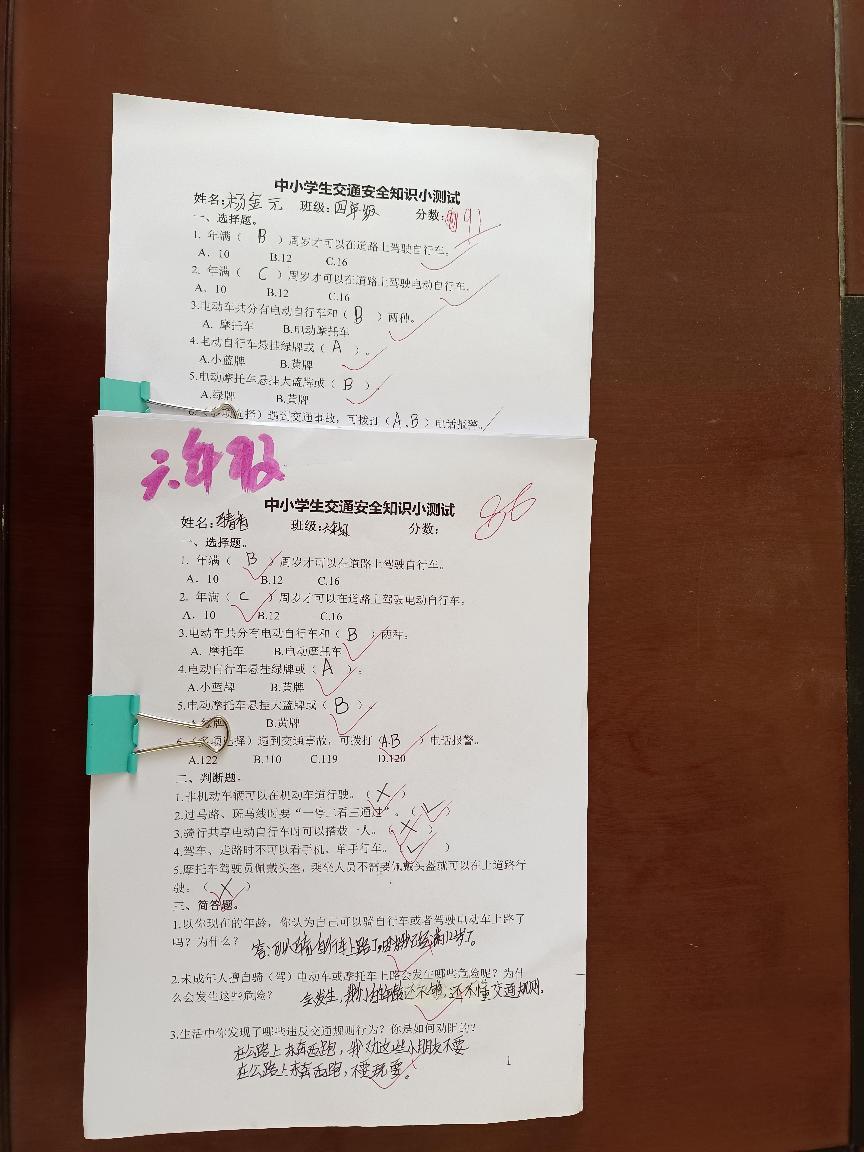 中小学生交通安全知识小测试
姓名:杨金元 班级:四年级 分数: 91
一、选择题。
1. 年满( B )周岁才可以在道路上驾驶自行车。
A. 10 B.12 C.16
2. 年满( C )周岁才可以在道路上驾驶电动自行车。
A. 10 B.12 C.16
3.电动车共分有电动自行车和( B )两种。
A. 摩托车 B.电动摩托车
4.电动自行车悬挂绿牌或( A )。
A.小蓝牌 B.黄牌
5.电动摩托车悬挂大蓝牌或( B )。
A.绿牌 B.黄牌
6.(多项选择)遇到交通事故,可拨打(A.B)电话报警。
六年级
中小学生交通安全知识小测试 86
姓名: 班级:六年级 分数:
一、选择题。
1. 年满( B )周岁才可以在道路上驾驶自行车。
A. 10 B.12 C.16
2. 年满( C )周岁才可以在道路上驾驶电动自行车。
A. 10 B.12 C.16
3.电动车共分有电动自行车和( B )两种。
A. 摩托车 B.电动摩托车
4.电动自行车悬挂绿牌或( A )。
A.小蓝牌 B.黄牌
5.电动摩托车悬挂大蓝牌或( B )。
A.绿牌 B.黄牌
6.(多项选择)遇到交通事故,可拨打(A.B)电话报警。
A.122 B.110 C.119 D.120
二、判断题。
1.非机动车辆可以在机动车道行驶。(×)
2.过马路、斑马线时要“一停二看三通过”。(✓)
3.骑行共享电动自行车时可以搭载一人。(×)
4.驾车、走路时不可以看手机、单手行车。(✓)
5.摩托车驾驶员佩戴头盔,乘坐人员不需要佩戴头盔就可以在上道路行
驶。(×)
三、简答题。
1.以你现在的年龄,你认为自己可以骑自行车或者驾驶电动车上路了
吗?为什么? 答:可以骑自行车上路了,因为我已经满12岁了。
2.未成年人擅自骑(驾)电动车或摩托车上路会发生哪些危险呢?为什
么会发生这些危险? 会发生,我们的年龄还不够,还不懂交通规则。
3.生活中你发现了哪些违反交通规则行为?你是如何劝阻的?
在公路上东奔西跑,我劝这些小朋友不要
在公路上东奔西跑,不要玩耍。
1